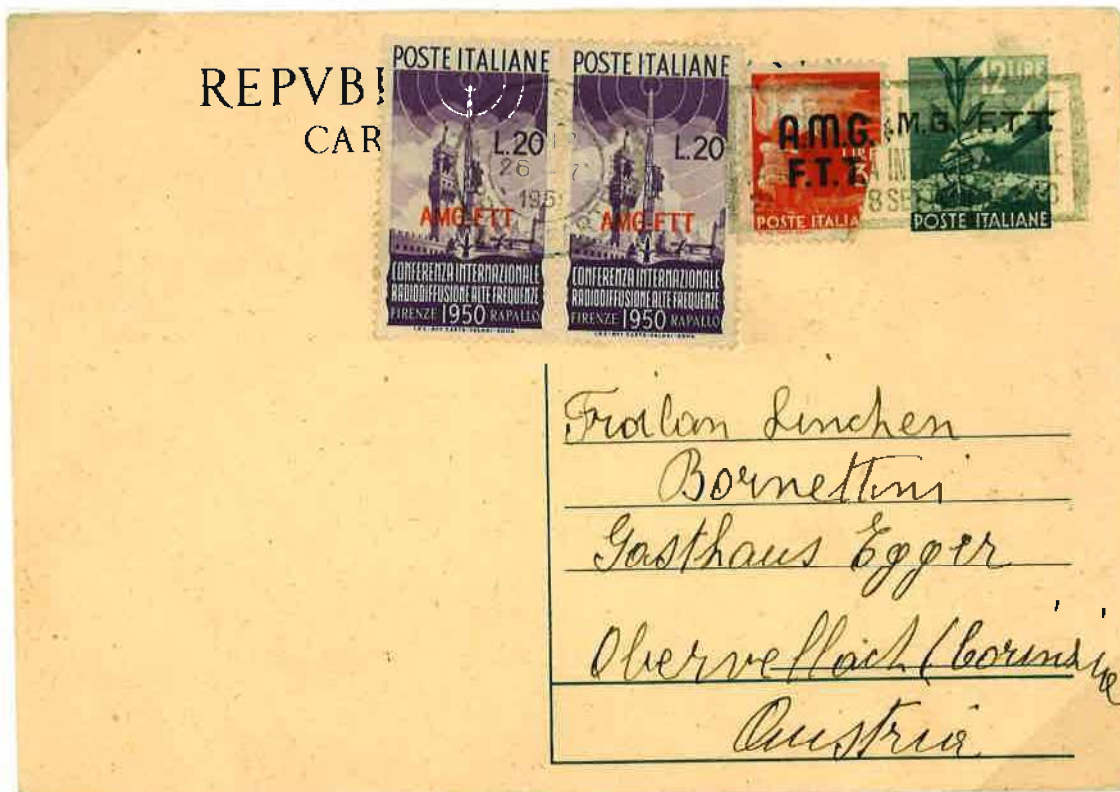 REPVB
CAR
POSTE ITALIANE
L.20
AMG-FTT
CONFERENZA INTERNAZIONALE
RADIODIFFUSIONE ALTE FREQUENZE
FIRENZE 1950 RAPALLO
POSTE ITALIANE
L.20
AMG-FTT
CONFERENZA INTERNAZIONALE
RADIODIFFUSIONE ALTE FREQUENZE
FIRENZE 1950 RAPALLO
26
195
A.M.G.
F.T.T.
LIRE
POSTE ITALIA
8 SE
12 LIRE
A.M.G. F.T.T.
POSTE ITALIANE
Frälan Linchen
Bornettini
Gasthaus Egger
Obervellach (Corinzia
Austria